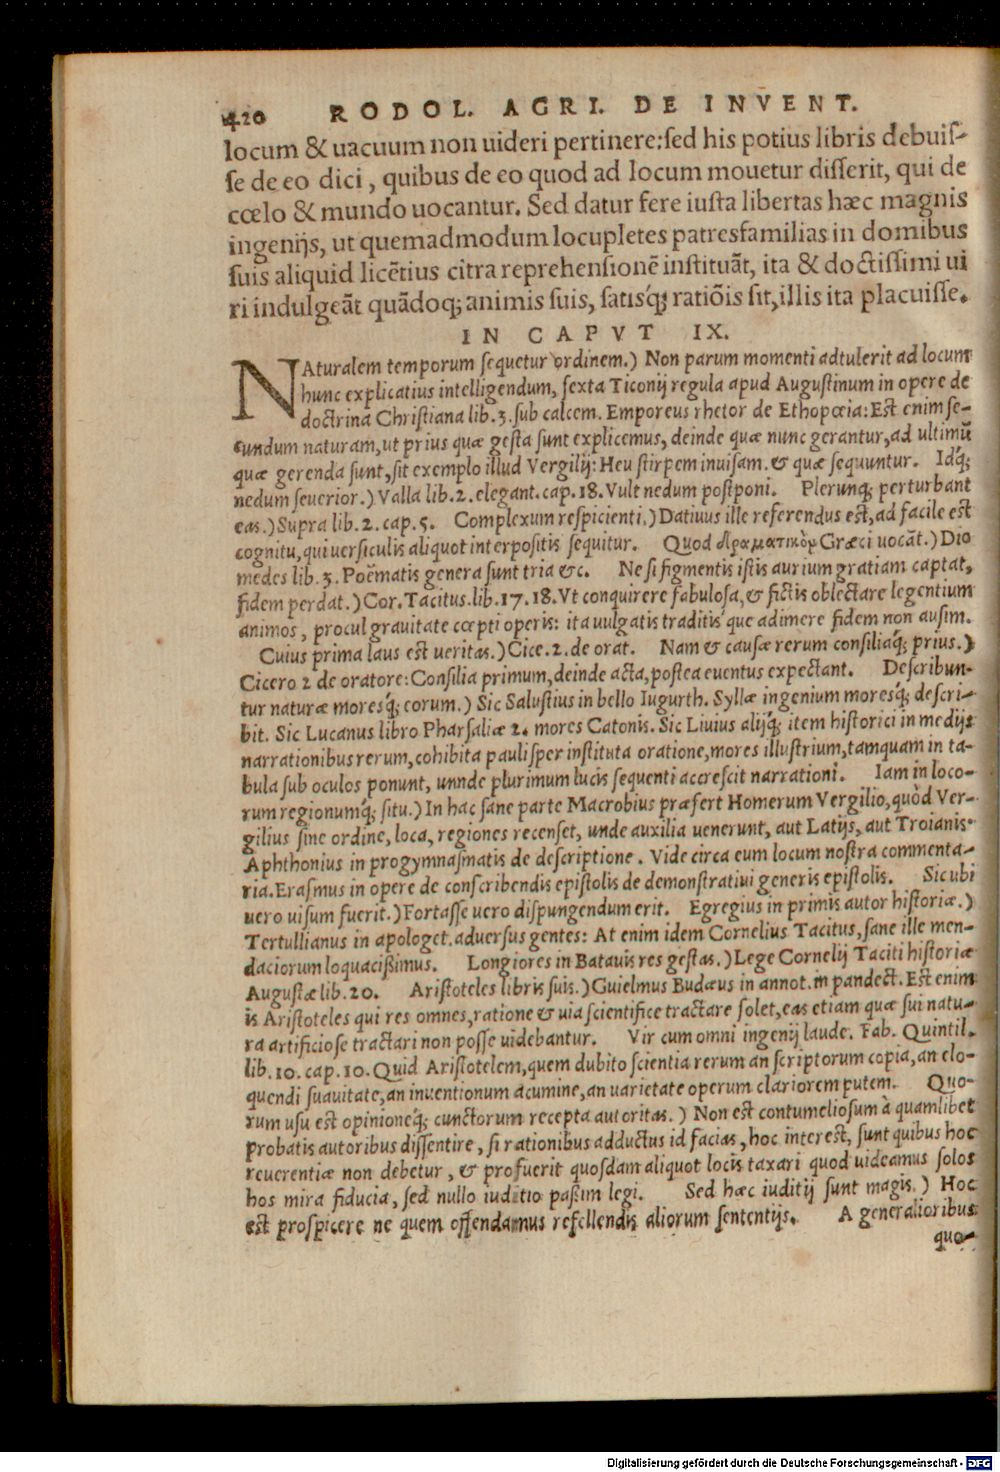 420 RODOL. AGRI. DE INVENT.
locum & uacuum non uideri pertinere: sed his potius libris debuis-
se de eo dici, quibus de eo quod ad locum mouetur disserit, qui de
cœlo & mundo uocantur. Sed datur fere iusta libertas hæc magnis
ingenijs, ut quemadmodum locupletes patresfamilias in domibus
suis aliquid licẽtius citra reprehensionẽ instituãt, ita & doctissimi ui
ri indulgeãt quãdoq; animis suis, satisq́; ratiõis sit, illis ita placuisse.
IN CAPVT IX.
NAturalem temporum sequetur ordinem.) Non parum momenti adtulerit ad locum
hunc explicatius intelligendum, sexta Ticonij regula apud Augustinum in opere de
doctrina Christiana lib. 3. sub calcem. Emporeus rhetor de Ethopœia: Est enim se-
cundum naturam, ut prius quæ gesta sunt explicemus, deinde quæ nunc gerantur, ad ultimũ
quæ gerenda sunt, sit exemplo illud Vergilij: Heu stirpem inuisam. & quæ sequuntur. Idq́;
nedum seuerior.) Valla lib. 2. elegant. cap. 18. Vult nedum postponi. Plerunq; perturbant
eas.) Supra lib. 2. cap. 5. Complexum respicienti.) Datiuus ille referendus est, ad facile est
cognitu, qui uersiculis aliquot interpositis sequitur. Quod δραματικὸν Græci uocãt.) Dio
medes lib. 3. Poëmatis genera sunt tria &c. Ne si figmentis istis aurium gratiam captat,
fidem perdat.) Cor. Tacitus. lib. 17. 18. Vt conquirere fabulosa, & fictis oblectare legentium
animos, procul grauitate cœpti operis: ita uulgatis traditis que adimere fidem non ausim.
Cuius prima laus est ueritas.) Cice. 2. de orat. Nam & causæ rerum consiliaq́; prius.)
Cicero 2 de oratore: Consilia primum, deinde acta, postea euentus expectant. Describun-
tur naturæ moresq́; eorum.) Sic Salustius in bello Iugurth. Syllæ ingenium moresq́; descri-
bit. Sic Lucanus libro Pharsaliæ 2. mores Catonis. Sic Liuius alijq́; item historici in medijs
narrationibus rerum, cohibita paulisper instituta oratione, mores illustrium, tamquam in ta-
bula sub oculos ponunt, unnde plurimum lucis sequenti accrescit narrationi. Iam in loco-
rum regionumq́; situ.) In hac sane parte Macrobius præfert Homerum Vergilio, quòd Ver-
gilius sine ordine, loca, regiones recenset, unde auxilia uenerunt, aut Latijs, aut Troianis.
Aphthonius in progymnasmatis de descriptione. Vide circa eum locum nostra commenta-
ria. Erasmus in opere de conscribendis epistolis de demonstratiui generis epistolis. Sicubi
uero uisum fuerit.) Fortasse uero dispungendum erit. Egregius in primis autor historiæ.)
Tertullianus in apologet. aduersus gentes: At enim idem Cornelius Tacitus, sane ille men-
daciorum loquacißimus. Longiores in Batauis res gestas.) Lege Cornelij Taciti historiæ
Augustæ lib. 20. Aristoteles libris suis.) Guielmus Budæus in annot. in pandect. Est enim
is Aristoteles qui res omnes, ratione & uia scientifice tractare solet, eas etiam quæ sui natu-
ra artificiose tractari non posse uidebantur. Vir cum omni ingenij laude. Fab. Quintil.
lib. 10. cap. 10. Quid Aristotelem, quem dubito scientia rerum an scriptorum copia, an elo-
quendi suauitate, an inuentionum acumine, an uarietate operum clariorem putem. Quo-
rum usu est opinioneq́; cunctorum recepta autoritas.) Non est contumeliosum à quamlibet
probatis autoribus dissentire, si rationibus adductus id facias, hoc interest, sunt quibus hoc
reuerentiæ non debetur, & profuerit quosdam aliquot locis taxari quod uideamus solos
hos mira fiducia, sed nullo iuditio paßim legi. Sed hæc iuditij sunt magis.) Hoc
est prospicere ne quem offendamus refellendis aliorum sententijs. A generalioribus
quo-
Digitalisierung gefördert durch die Deutsche Forschungsgemeinschaft - DFG